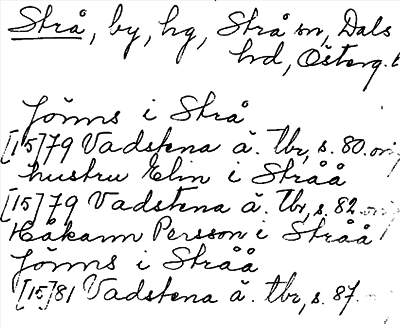 Strå, by, hg, Strå sn, Dals
hd, Österg. l
Jöns i Strå
[15]79 Vadstena ä. tbr, s. 80. ori
hustru Elin i Stråå
[15]79 Vadstena ä. tbr, s. 82. ori
Håkann Persson i Stråå
Jöns i Stråå
[15]81 Vadstena ä. tbr, s. 87.